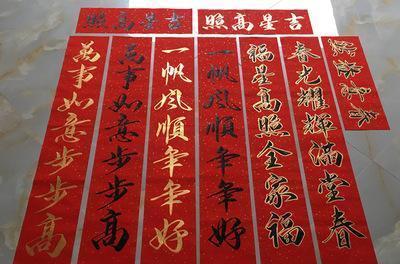 吉星高照
吉星高照
春光耀輝滿堂春
福星高照全家福
一帆風順年年好
一帆風順年年好
萬事如意步步高
萬事如意步步高